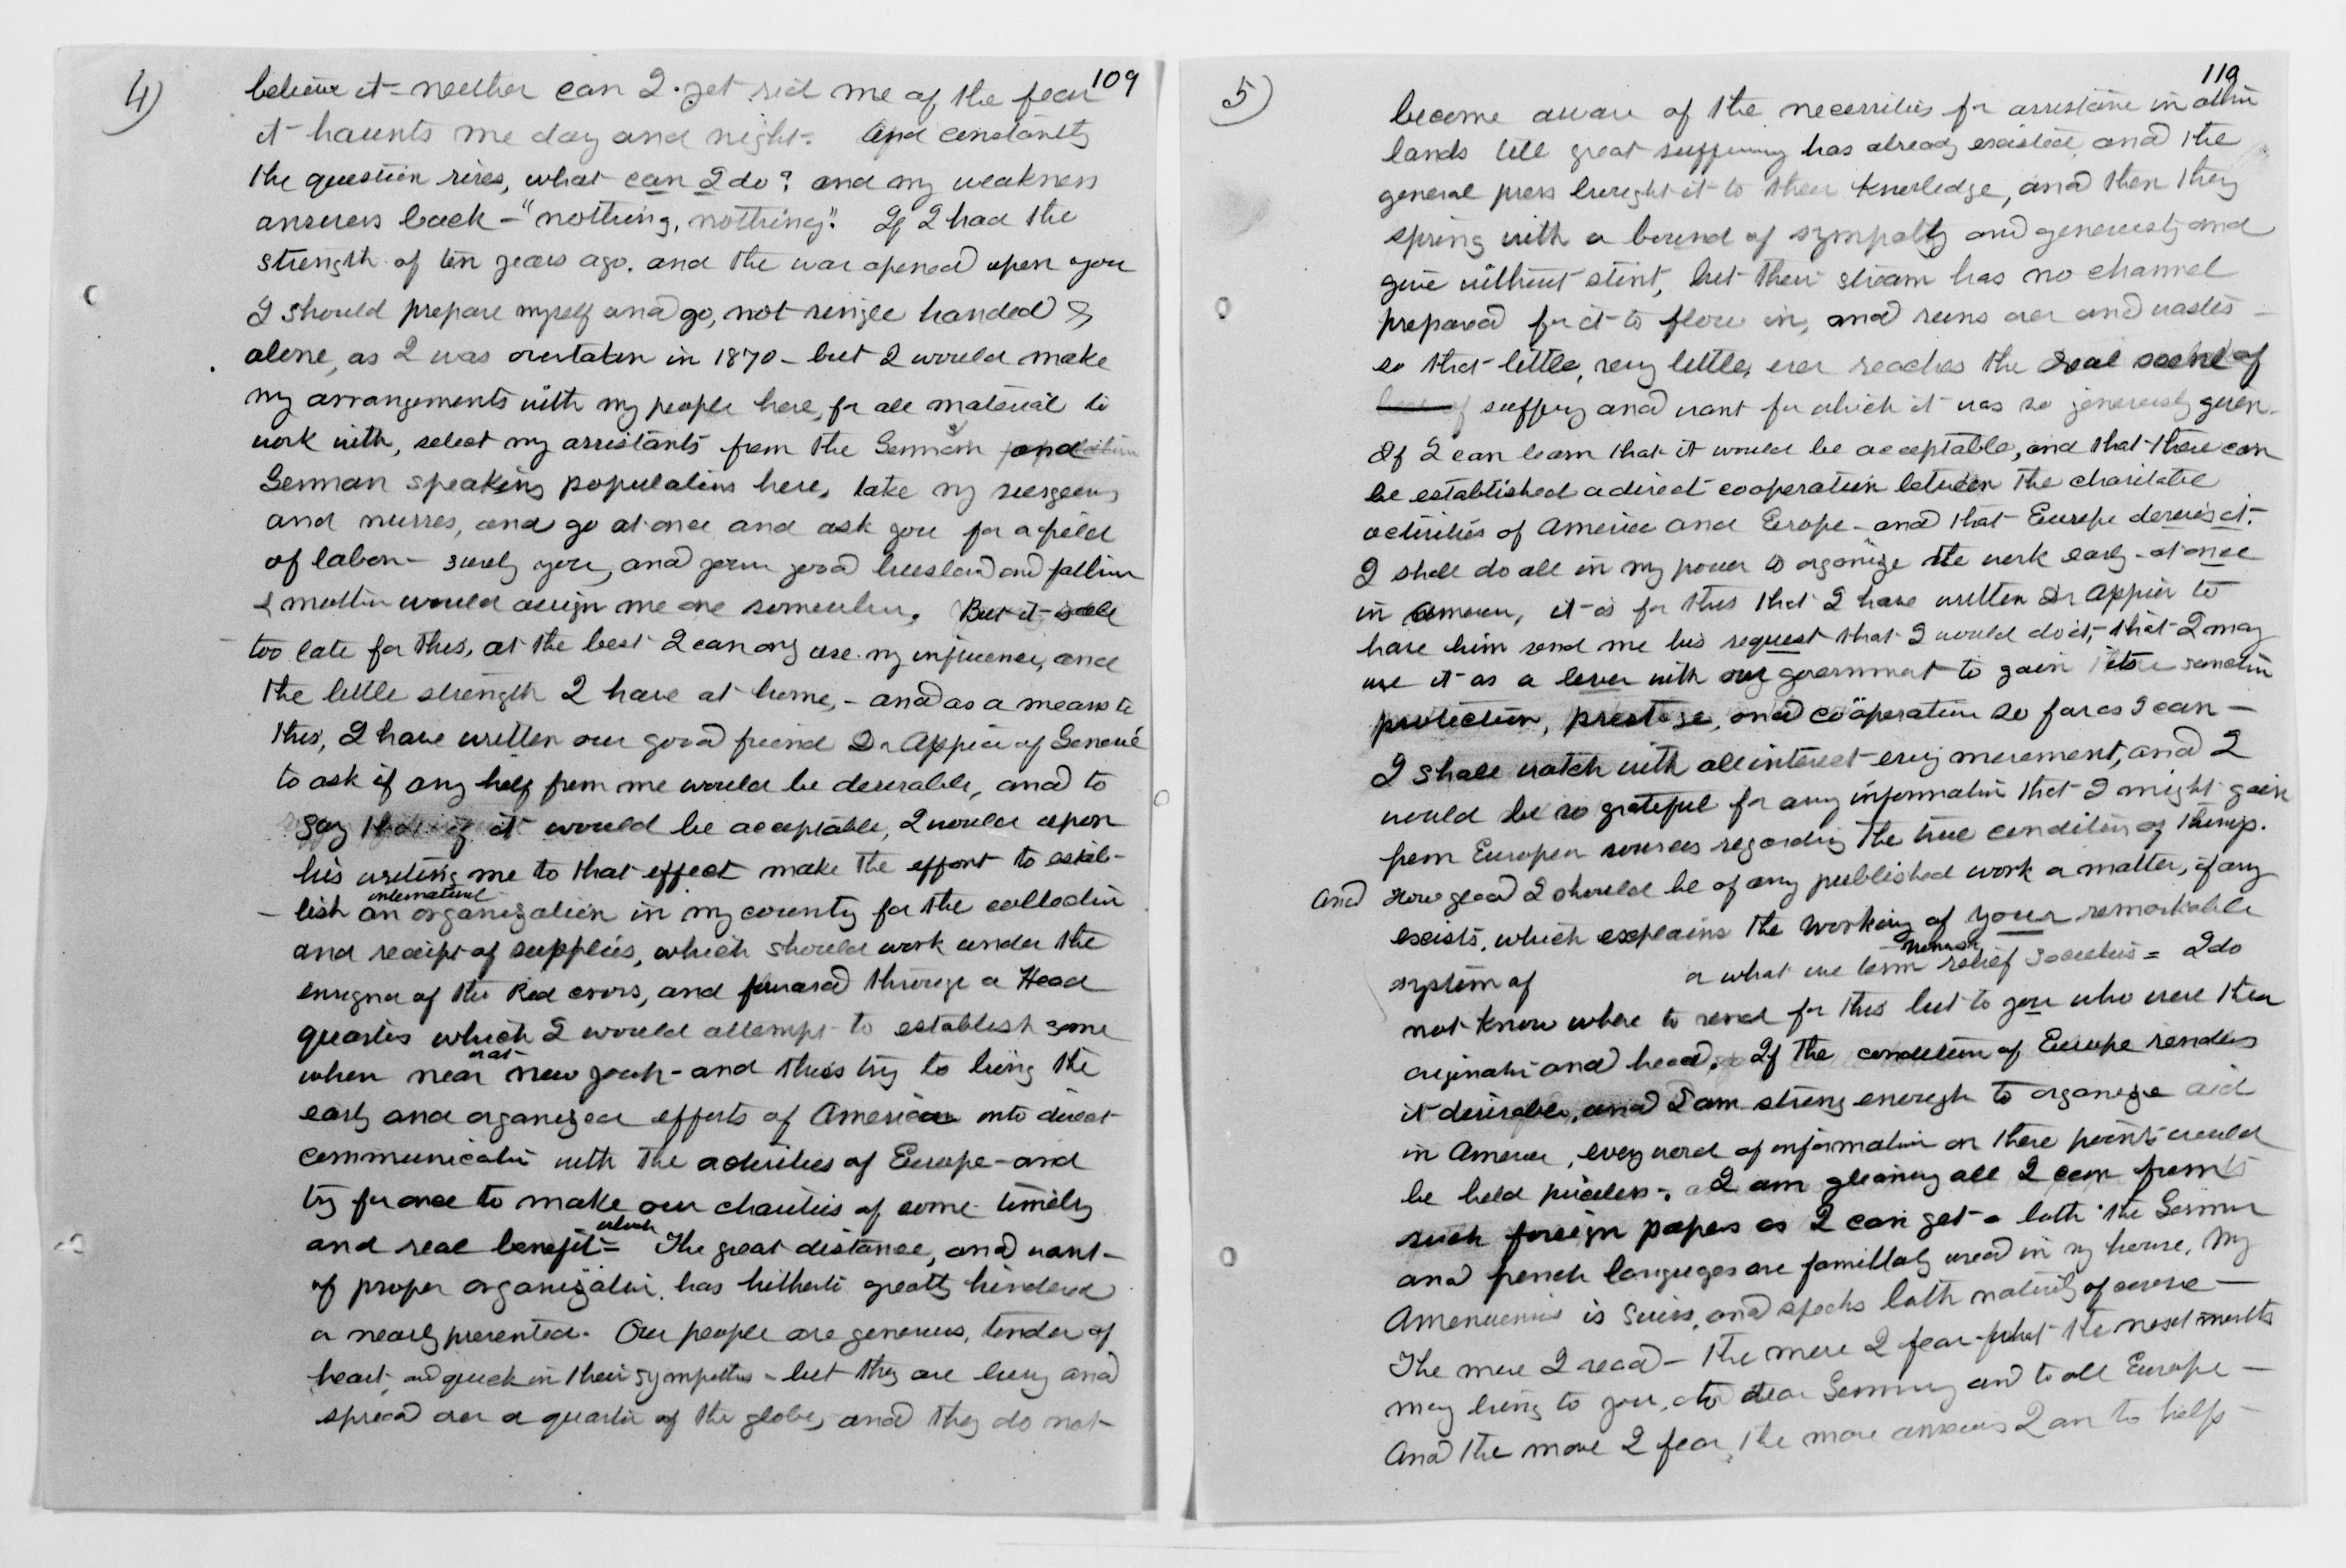 4)
109
believe it - neither can I get rid me of the fear
it haunts me day and night - And constantly
the question rises, what can I do? and my weakness
answers back - "nothing, nothing". If I had the
strength of ten years ago, and the war opened upon you
I should prepare myself and go, not single handed &
alone, as I was overtaken in 1870 - but I would make
my arrangements with my people here, for all material to
work with, select my assistants from the Germans and
German speaking populations here, take my surgeons
and nurses, and go at once and ask you for a field
of labor - surely you, and your good husband and father
& mother would assign me one somewhere. But it is all
too late for this, at the best I can only use my influence, and
the little strength I have at home, - and as a means to
this, I have written our good friend Dr Appia of Geneva
to ask if any help from me would be desirable, and to
say that if it would be acceptable, I would upon
his writing me to that effect make the effort to estab-
international
- lish an organization in my country for the collection
and receipt of supplies, which should work under the
ensigna of the Red cross, and forward through a Head
quarters which I would attempt to establish some
or at
when near New York - and thus try to bring the
early and organized efforts of America into direct
communication with the activities of Europe - and
try for once to make our charities of some timely
which
and real benefit = The great distance, and want -
of proper organization, has hitherto greatly hindered
or nearly prevented. Our people are generous, tender of
heart, and quick in their sympathies - but they are busy and
spread over a quarter of the globe, and they do not
5)
110
become aware of the necessities for assistance in other
lands till great suffering has already existed, and the
general press brought it to their knowledge, and then they
spring with a bound of sympathy and generosity and
give without stint, but their stream has no channel
prepared for it to flow in, and runs over and wastes -
so that little, very little, ever reaches the real scene of
suffering and want for which it was so generously given -
If I can learn that it would be acceptable, and that there can
be established a direct cooperation between the charitable
activities of America and Europe - and that Europe desires it -
I shall do all in my power to organize the work early - at once
in America, it is for this that I have written Dr Appia to
have him send me his request that I would do it, - that I may
use it as a lever with our government to gain its sanction
protection, prestige, and coöperation so far as I can -
I shall watch with all interest every movement, and I
would be so grateful for any information that I might gain
from European sources regarding the true condition of things.
And How glad I should be of any published work or matter, if any
exists, which explains the working of your remarkable
woman
system of or what we term relief societies = I do
not know where to send for this but to you who were their
originator and head. If the condition of Europe renders
it desirable, and I am strong enough to organize aid
in America, every word of information on these points would
be held priceless - I am gleaning all I can from
such foreign papers as I can get - both the German
and french languages are familiarly used in my house, My
Amanuensis is Swiss, and speaks both natively of course -
The more I read - the more I fear what the next months
may bring to you, to dear Germany and to all Europe -
And the more I fear, the more anxious I am to help -